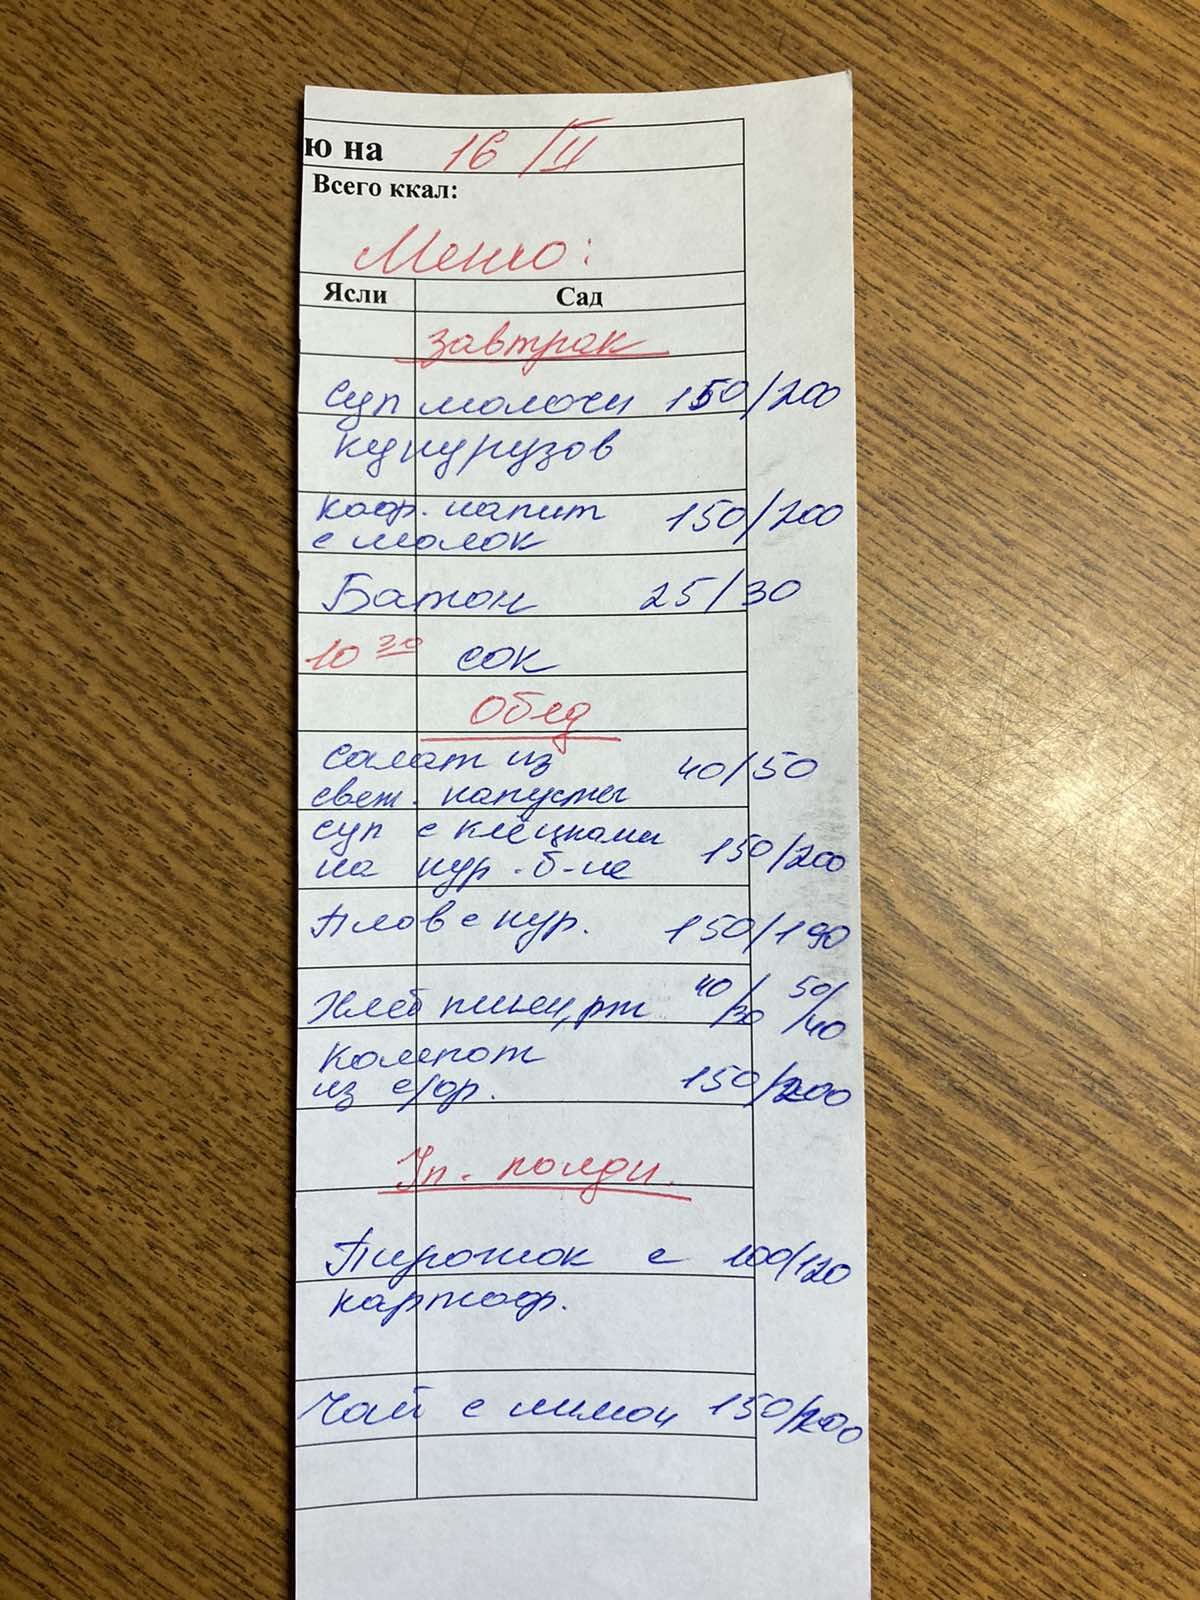 ю на 16/II
Всего ккал:
Меню:
Ясли Сад
Завтрак
Суп молочн 150/200
кукурузов
Коф. напит 150/200
с молок
Батон 25/30
10 30 сок
Обед
Салат из 40/50
свеж. капусты
Суп с клёцками 150/200
на кур. б-не
Плов с кур. 150/190
Хлеб пшен, рж 40/30 50/40
Компот
из с/фр. 150/200
Уп. полдн.
Пирожок с 100/120
картоф.
Чай с лимон 150/200